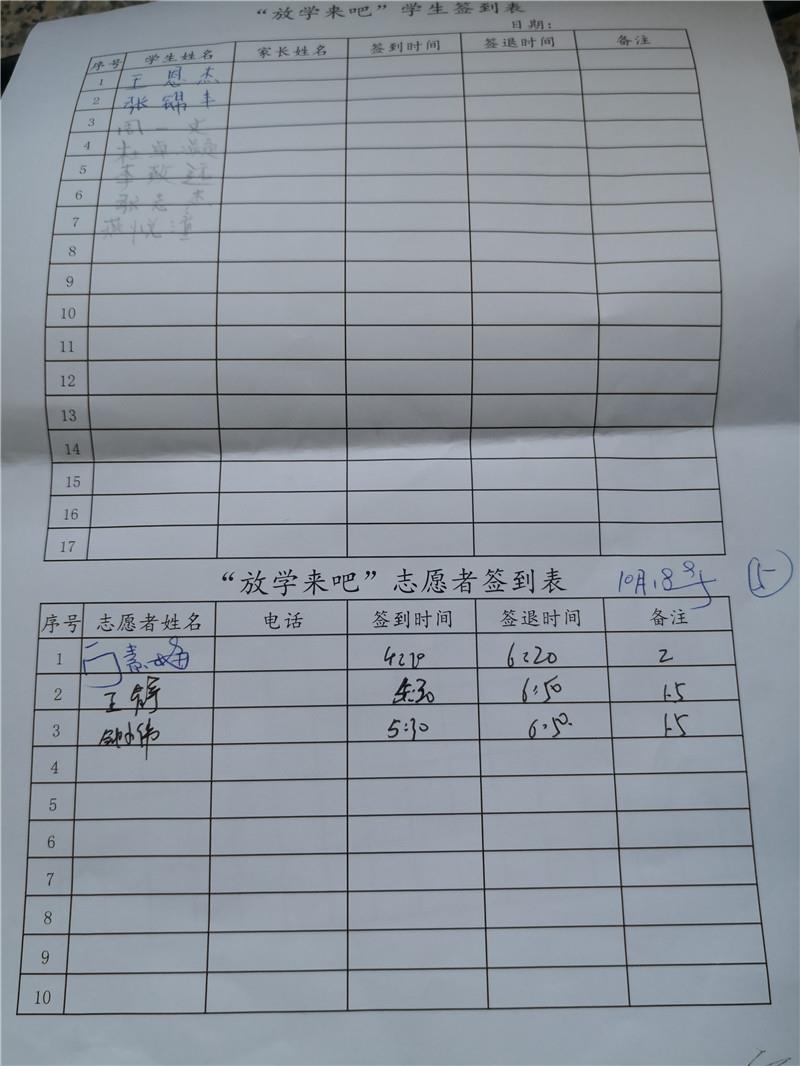 “放学来吧”学生签到表
日期：
序号 学生姓名 家长姓名 签到时间 签退时间 备注
1 王恩杰
2 张锦丰
3 周一文
4
5 李政廷
6 张志杰
7
8
9
10
11
12
13
14
15
16
17
“放学来吧”志愿者签到表 10月18号 5
序号 志愿者姓名 电话 签到时间 签退时间 备注
1 6:20 2
2 王 6:50 1.5
3 5:30 6:50 1.5
4
5
6
7
8
9
10